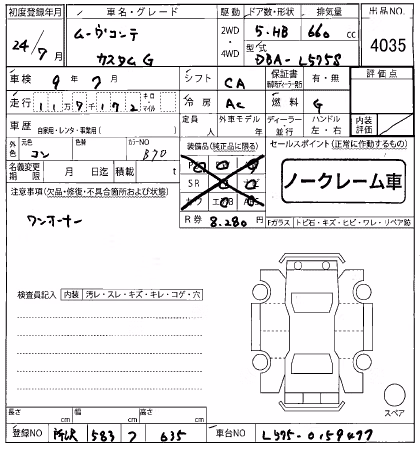 初度登録年月 車名・グレード 駆動 ドア数・形状 排気量 出品NO.
24/7月 ムーヴコンテ カスタムG 2WD・4WD 5・HB 660 cc 4035
型式 DBA-L575S
車検 9年7月 シフト CA 保証書 有・無 評価点
走行 117172 キロ・マイル 冷房 AC 燃料 G
車歴 自家用・レンタ・事業用( ) 定員 人 外車モデル 年 ディーラー・並行 ハンドル 左・右 内装評価
外色 元色 コン 色替 カラーNO B70
装備品(純正品に限る) セールスポイント(正常に作動するもの)
名義変更期限 月 日迄 積載 t
SR ナビ
ノークレーム車
注意事項(欠品・修復・不具合箇所および状態)
ワンオーナー
R券 8.280円
Fガラス トビ石・キズ・ヒビ・ワレ・リペア跡
検査員記入 内装 汚レ・スレ・キズ・キレ・コゲ・穴
スペア
長さ cm 幅 cm 高さ cm
登録NO 所沢 583 635 車台NO L575-0159477